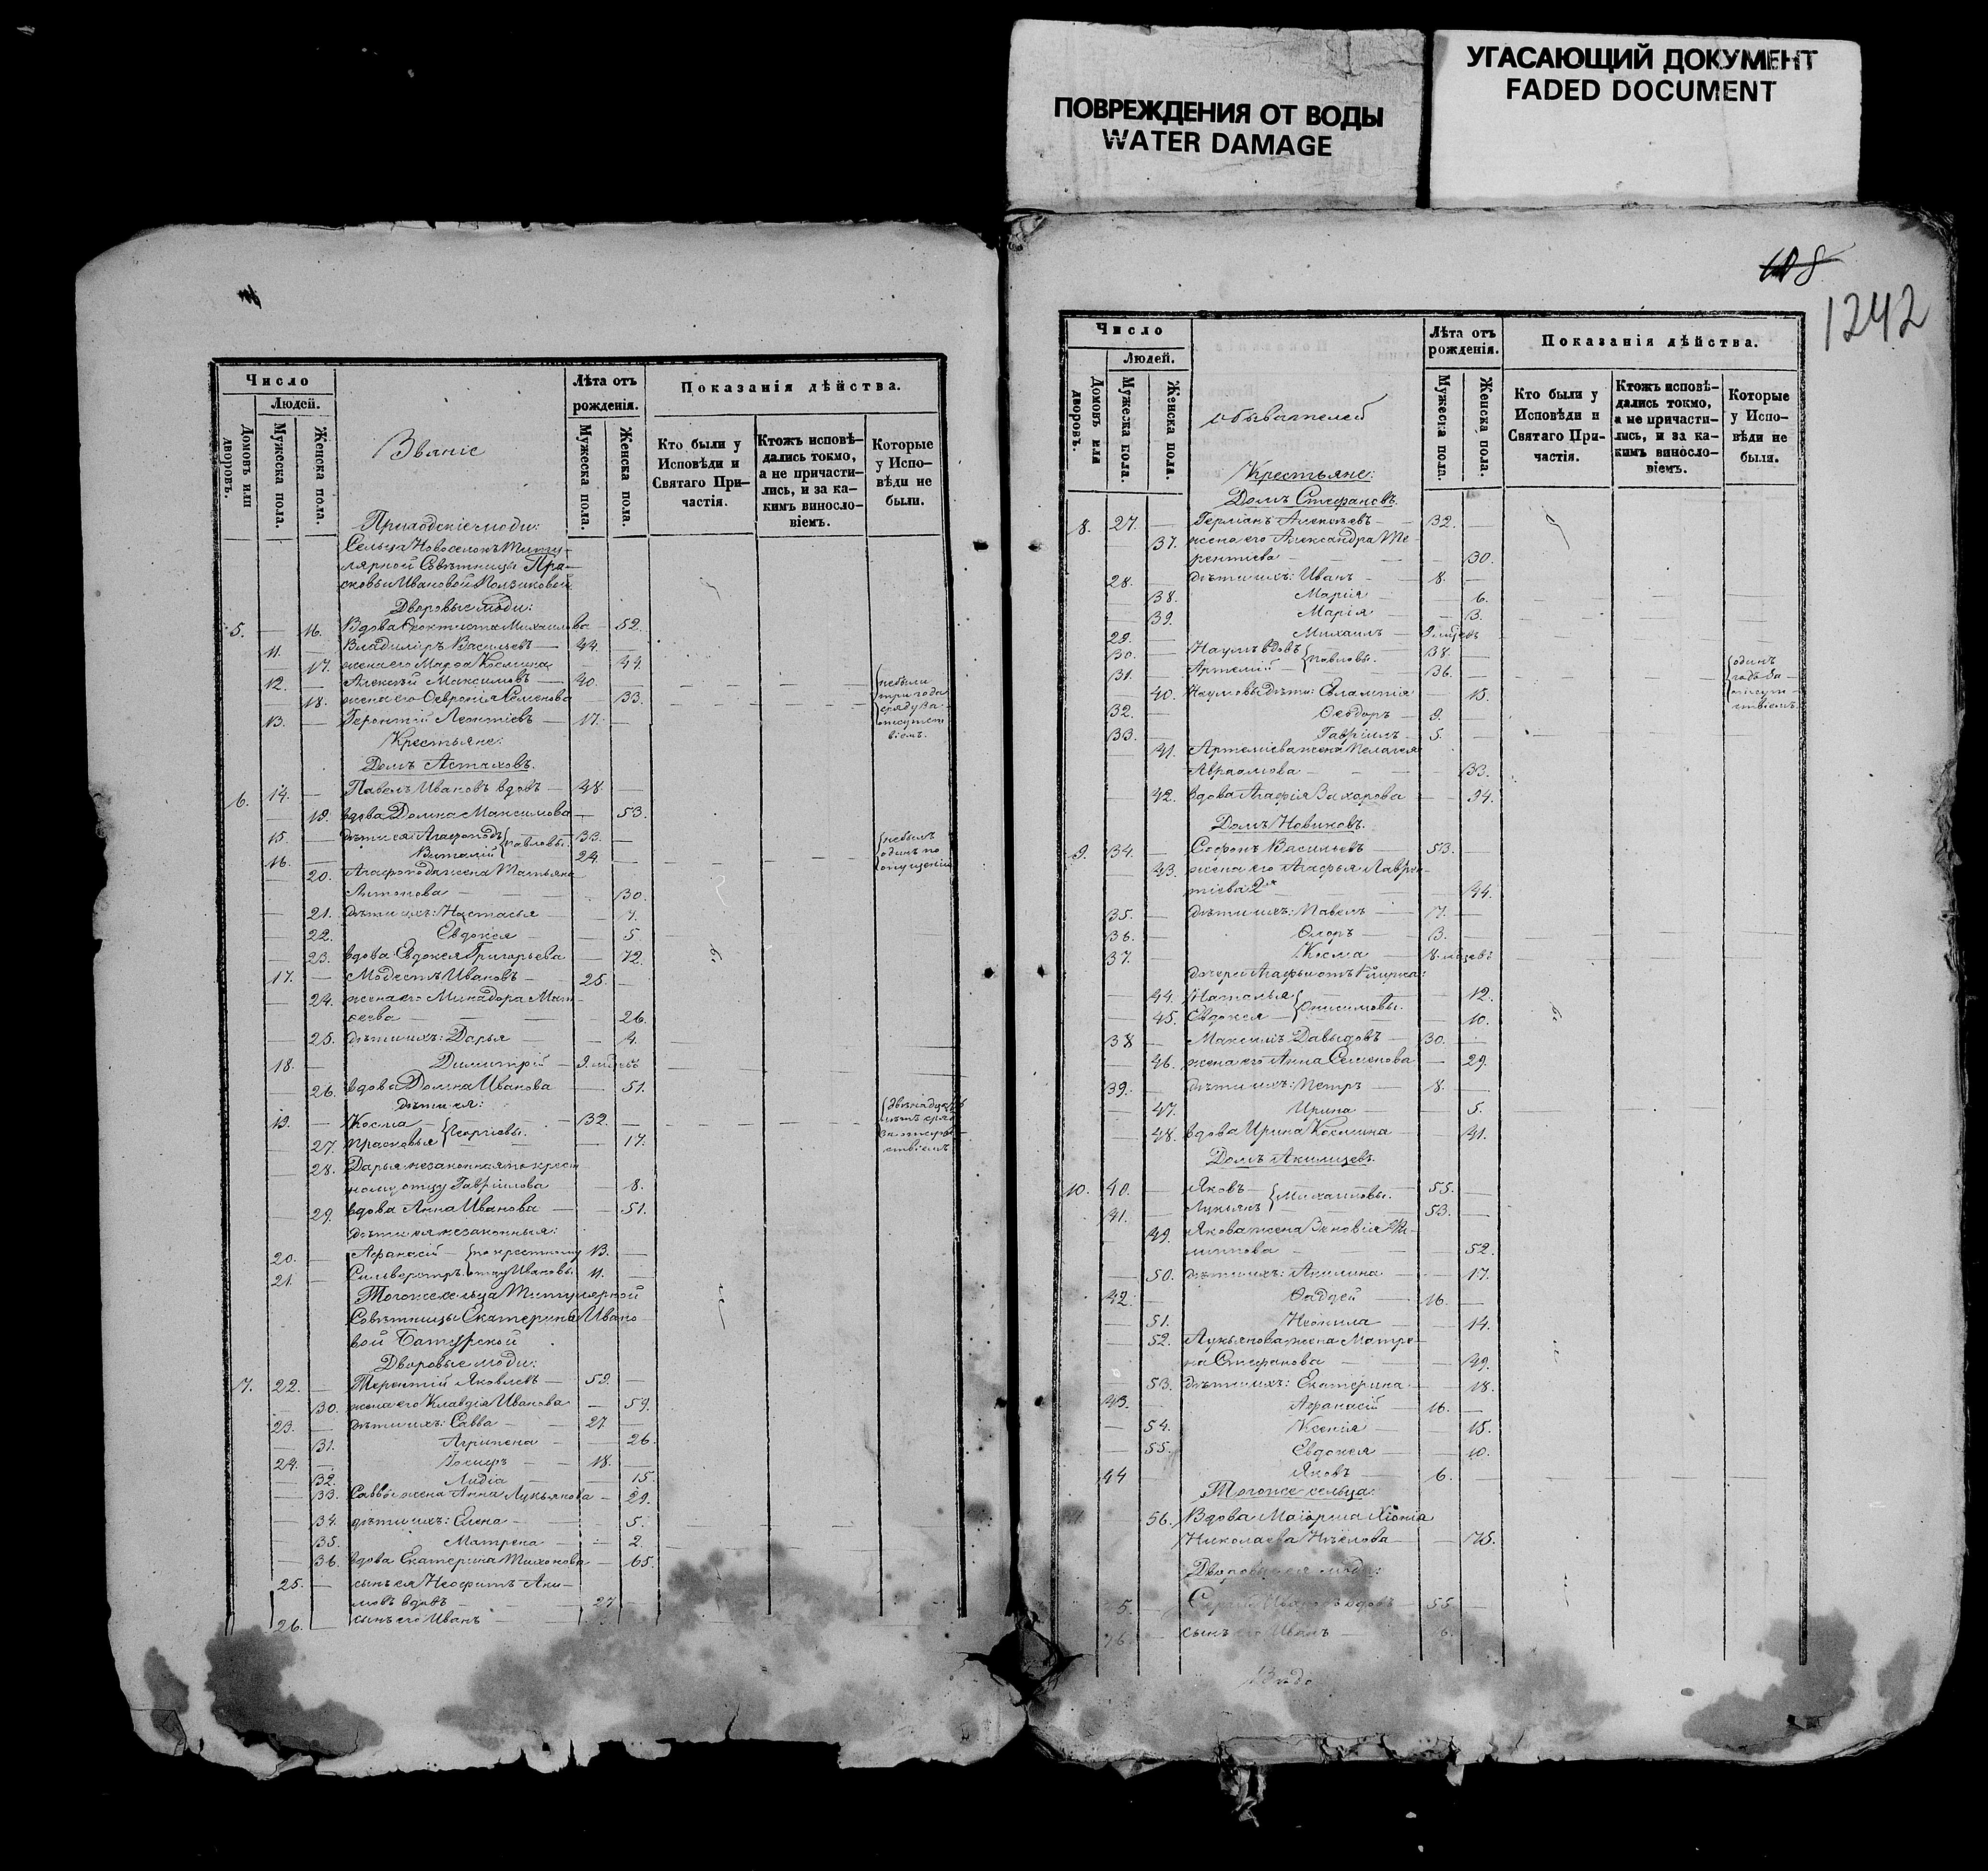 ПОВРЕЖДЕНИЯ ОТ ВОДЫ
WATER DAMAGE
УГАСАЮЩИЙ ДОКУМЕНТ
FADED DOCUMENT
Число
Людей.
Домовъ или дворовъ.
Мужеска пола.
Женска пола.
Званіе
Лѣта отъ рожденія.
Мужеска пола.
Женска пола.
Показанія дѣйства.
Кто были у Исповѣди и Святаго Причастія.
Ктожъ исповѣдались токмо, а не причастились, и за какимъ винословіемъ.
Которые у Исповѣди не были.
Приходскіе люди:
Сельца Новоселокъ Титу-
лярной Совѣтницы Пра-
сковьи Ивановой
Дворовые люди:
5. — 16. Вдова Феоктиста Михаилова — 52.
11. — Владиміръ Васильевъ — 44. —
— 17. жена его Марфа Космина — 44.
12. — Алексѣй Максимовъ — 40. —
— 18. жена его Февронія Семенова — 33.
небыли три года сряду за отсутствіемъ.
13. — Геронтій Леонтіевъ — 17. —
Крестьяне:
Домъ Астаховъ.
6. 14. — Павелъ Ивановъ вдовъ — 48 —
— 19. вдова Домна Максимова — 53.
15. — дѣти ея: Агафоподъ Павловы. 33. —
16. — Виталій 24. —
небылъ одинъ по опущенію
— 20. Агафопода жена Татьяна
Антонова — 30.
— 21. дѣти ихъ: Настасья — 7.
— 22. Евдокея — 5
— 23. вдова Евдокея Григорьева — 72.
17. — Модестъ Ивановъ — 25. —
— 24. жена его Минадора Мат-
ѳеева — 26.
— 25. дѣти ихъ: Дарья — 4.
18. — Димитрій — 9. мѣсяц.
— 26. вдова Домна Иванова — 51.
дѣти ея:
19. — Косма Георгіевы. 32. —
— 27. Прасковья — 17.
— 28. Дарья незаконная по крест-
ному отцу Гавріилова — 8.
— 29. вдова Анна Иванова — 51.
дѣти ея незаконныя:
20. — Афанасій — по крестному 13. —
21. — Силиверстръ. отцу Ивановы. 11. —
Тогоже сельца Титулярной
Совѣтницы Екатерины Ивано-
вой Батурской
Дворовые люди:
7. 22. — Терентій Яковлевъ — 59. —
— 30. жена его Клавдія Иванова — 59.
23. — дѣти ихъ: Савва — 27 —
— 31. Агрипена — 26.
24. — 18. —
— 32. Лидія — 15.
— 33. Саввы жена Анна Лукьянова — 29.
— 34. дѣти ихъ: Елена — 5.
— 35. Матрена — 2.
— 36. вдова Екатерина Тихонова — 65.
25. — сынъ ея Неофитъ Аки-
мовъ вдовъ — 27 —
26. — сынъ его Иванъ —
108
1242
Число
Людей.
Домовъ или дворовъ.
Мужеска пола.
Женска пола.
обывателей
Лѣта отъ рожденія.
Мужеска пола.
Женска пола.
Показанія дѣйства.
Кто были у Исповѣди и Святаго Причастія.
Ктожъ исповѣдались токмо, а не причастились, и за какимъ винословіемъ.
Которые у Исповѣди не были.
Крестьяне:
Домъ Стефановъ.
8. 27. — Германъ Алексѣевъ — 32. —
37. жена его Александра Те-
рентіева — 30.
28. — дѣти ихъ: Иванъ — 8. —
— 38. Марія — 6.
— 39. Марія — 3.
29. — Михаилъ — 9 мѣсяц.
30. — Наумъ вдовъ Павловы. 38. —
31. — Артемій 36. —
одинъ годъ за отсутствіемъ.
— 40. Наумовы дѣти: Евлампія — 15.
32. — Феодоръ — 9. —
33. — Гавріилъ — 5. —
— 41. Артеміева жена Пелагея
Авраамова — 33.
— 42. вдова Агафія Захарова — 34.
Домъ Новиковъ.
9. 34. — Софонъ Васильевъ — 53. —
— 43. жена его Агафья Лаврен-
тіева 2я — 44.
35. — дѣти ихъ: Павелъ — 7. —
36. — Флоръ — 3. —
37. — Косма — 8. мѣсяц.
дочери Агафьи отъ 1го мужа:
— 44. Наталья Онисимовы. — 12.
— 45. Евдокея — 10.
38 — Максимъ Давыдовъ — 30. —
— 46. жена его Анна Семенова — 29.
39. — дѣти ихъ: Петръ — 8. —
— 47. Ирина — 5.
— 48. вдова Ирина Космина — 41.
Домъ Акилицевъ.
10. 40. — Яковъ Михаиловы. 55. —
41. — Лукьянъ 53. —
— 49. Якова жена Зиновія Фи-
липпова — 52.
— 50. дѣти ихъ: Акилина — 17.
42. — Фаддей — 16. —
— 51. Неонила — 14.
— 52. Лукьянова жена Матре-
на Стефанова — 49.
— 53. дѣти ихъ: Екатерина — 18.
43. — Афанасій — 16. —
— 54. Ксенія — 15.
— 55. Евдокея — 10.
44 Яковъ — 6. —
Тогоже сельца:
— 56. Вдова Маіорша Хіонія
Николаева — 75.
Дворовые ея люди:
5. вдовъ 55. —
сынъ его Иванъ — 6.